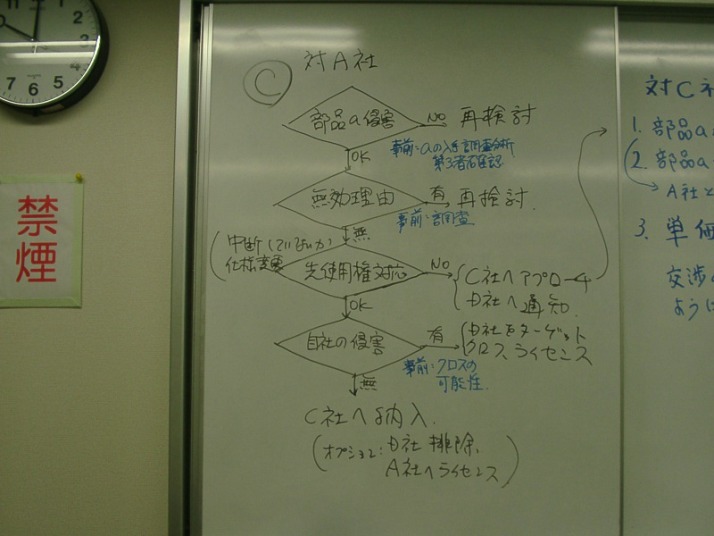 12
1
2
3
4
5
6
7
禁煙
Ⓒ 対A社
部品a侵害 NO 再検討
事前:aの入手調査分析
第3者確認
OK
無効理由 有 再検討.
事前:調査
無
中断していないか
仕様変更
先使用権対応 NO C社へアプローチ
D社へ通知.
OK
自社の侵害 有 D社をターゲット
クロスライセンス
事前:クロスの
可能性.
無
C社へ納入.
(オプション:D社排除、
A社へライセンス)
対C社
1. 部品a
2. 部品a
A社と
3. 単価
交渉
ように